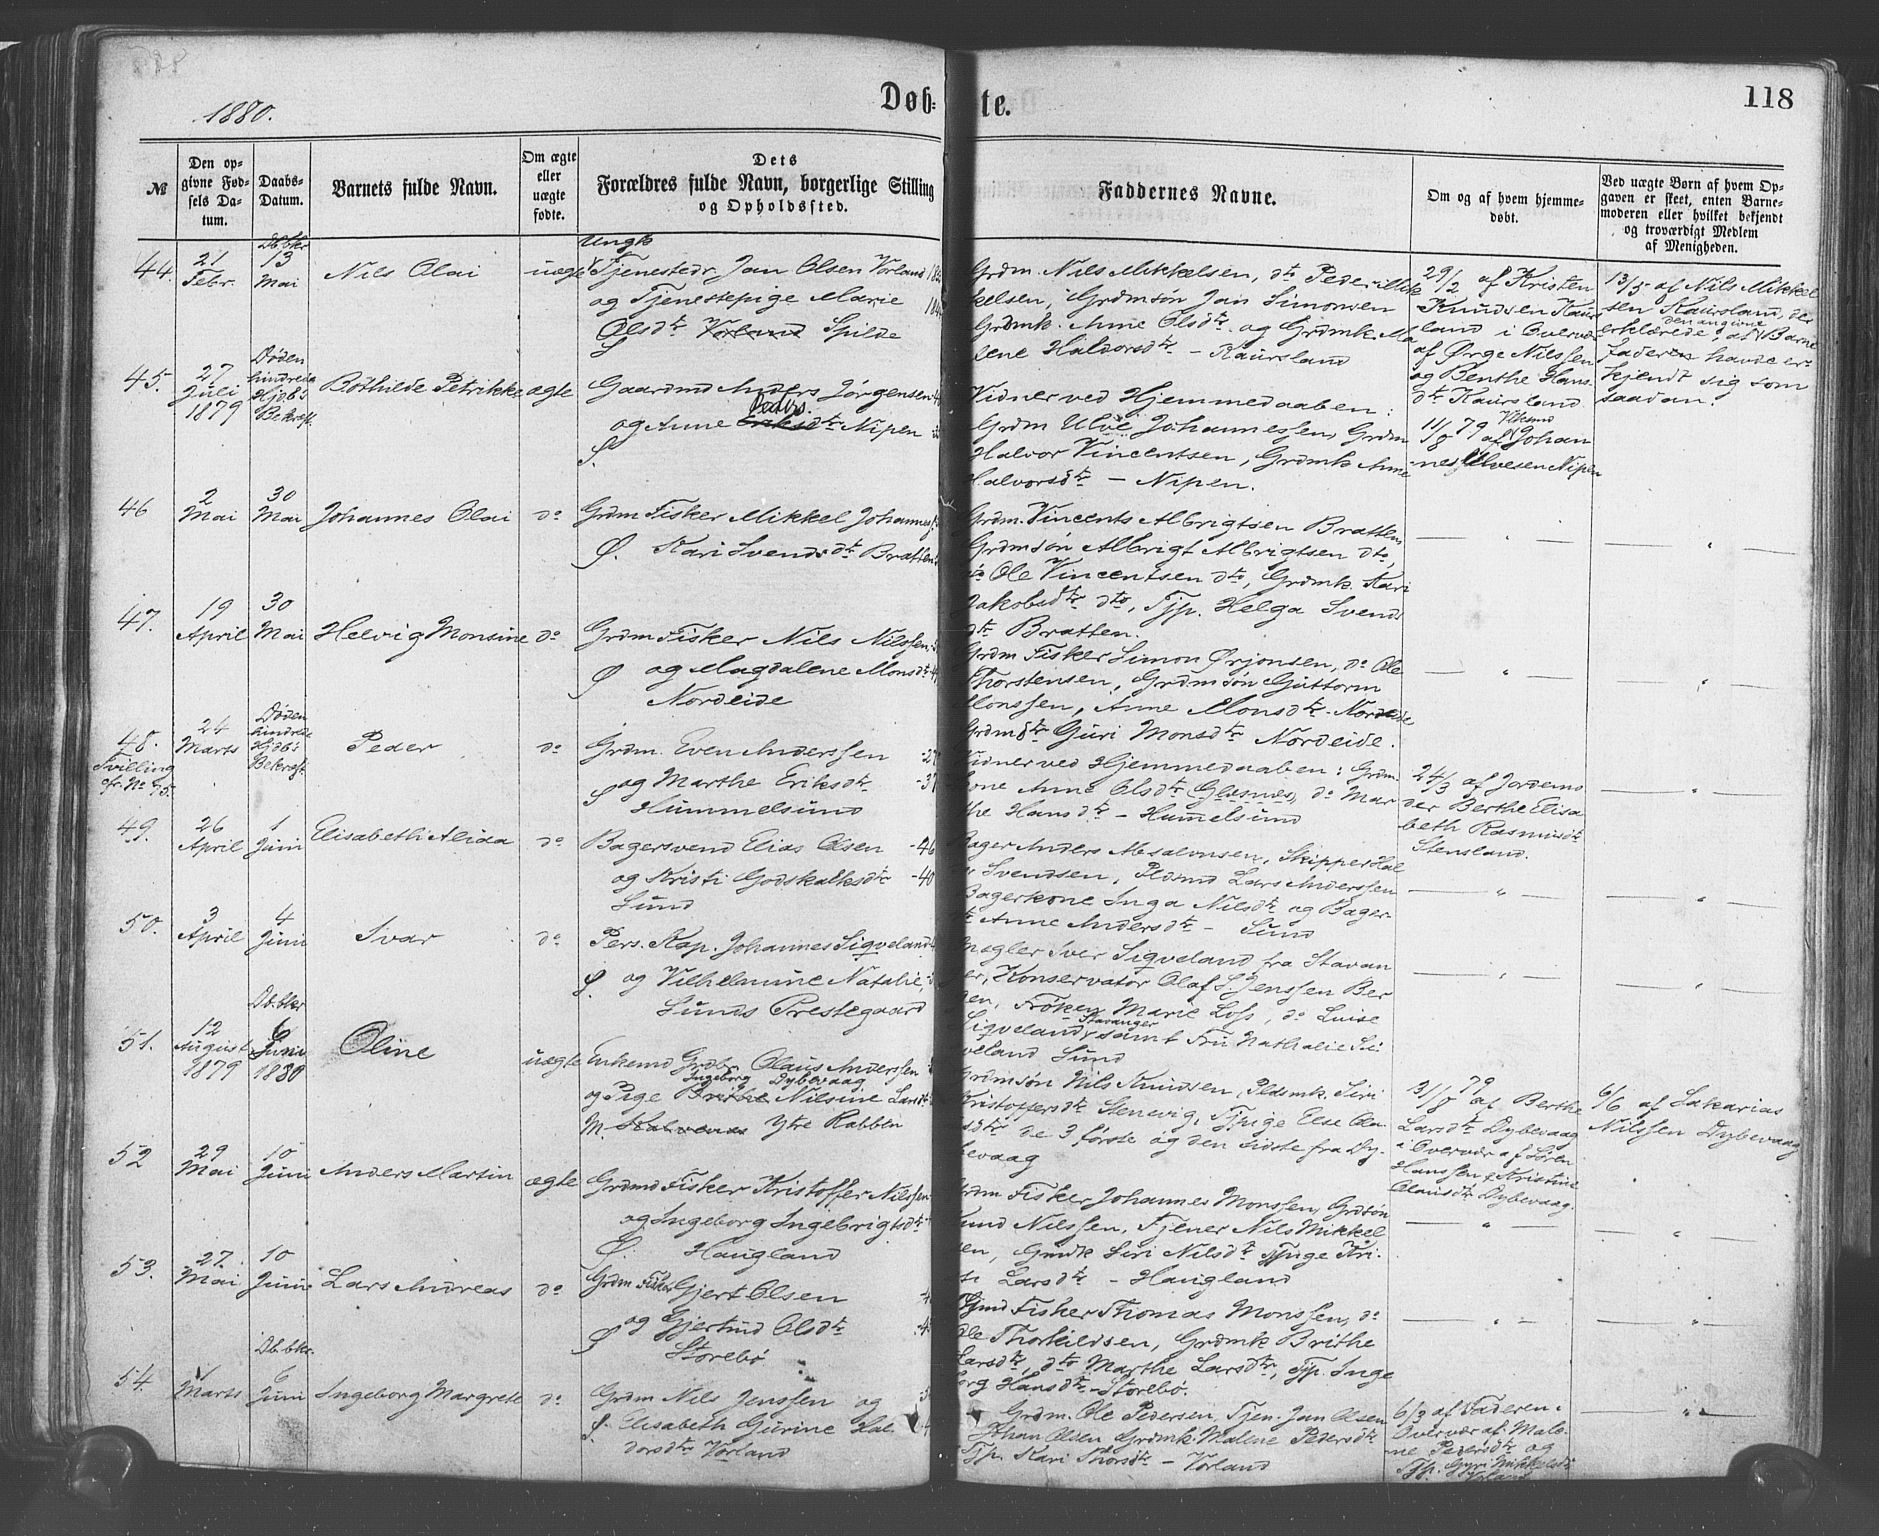 1880.
Døb-
te.
118
№
Den op-
givne Fød-
sels Da-
tum.
Daabs-
Datum.
Barnets fulde Navn.
Om ægte
eller
uægte
fødte.
Dets
Forældres fulde Navn, borgerlige Stilling
og Opholdssted.
Faddernes Navne.
Om og af hvem hjemme-
døbt.
Ved uægte Børn af hvem Op-
gaven er skeet, enten Barne-
moderen eller hvilket bekjendt
og troværdigt Medlem
af Menigheden.
44. 21 Febr. Db.bkr. 13 Mai Nils Olai uægte
Ungk
Tjenestedr. Jan Olsen Vorland
og Tjenestepige Marie
Olsdtr Vorland Spilde
Grdm. Nils Mikkelsen, dto Peder Mik
kelsen, Grdmsøn Jan Simonsen
Grdmk. Anne Olsdtr. og Grdmk. Ma
lene Haldorsdtr - Kaursland
29/2 af Kristen
Knudsen Kaurs
land i Overvær
af Ørge Nilssen
og Benthe Hans-
dtr Kaursland
13/5 af Nils Mikkel
sen Kaursland, der
erklærede, at den angivne Barne
fader havde er-
kjendt sig som
saadan.
45. 27 Juli 1879 Døden hindrede Hjdbs Bekræft. Bothilde Petrikke ægte
Gaardmd Anders Jørgensen
og Anne Eriksdtr Peders. Nipen
Vidner ved Hjemmedaaben:
Grdm Ulve Johannessen, Grdm
Halvor Vincentsen, Grdmk Anne
Halvorsdtr - Nipen.
11/8 79 af Johan
nes Ulvesen Nipen
46 2 Mai 30 Mai Johannes Olai do
Grdm Fisker Mikkel Johannes
Kari Svendsdtr Bratten
Grdm. Vincents Albrigtsen Bratten
Grdmsøn Albrigt Albrigtsen dto,
do Ole Vincentsen dto, Grdmk. Kari
Jakobsdtr dto, Tjp. Helga Svends
dtr Bratten.
47. 19 April 30 Mai Helvig Monsine do
Grdm Fisker Nils Nilssen
og Magdalene Monsdtr
Nordeide
Grdm Fisker Simon Ørjonsen, do Ole
Thorstensen, Grdmsøn Guttorm
Monssen, Anne Monsdtr - Nordeide
Grdmdtr Guri Monsdtr Nordeide.
48. Tvilling cfr. No 95. 24 Marts Døden hindrede Hjdbs Bekræft. Peder do
Grdm. Even Anderssen -27
og Marthe Eriksdtr. -37
Hummelsund
Vidner ved Hjemmedaaben: Grdm-
kone Anne Olsdtr Glesnes, do Mar
the Hansdtr - Hummelsund
24/3 af Jordemo
der Berthe Elisa
beth Rasmusdtr
Stensland.
49. 26 April 1 Juni Elisabeth Alida do
Bagersvend Elias Olsen -46
og Kristi Godskalksdtr -40
Sund
Bager Anders Absalonsen, Skipper Hal
Svendsen, Pldsmd Lars Anderssen
Bagerkone Inga Nilsdtr og Bager-
dtr Anne Andersdtr - Sund
50. 3 April 4 Juni Ivar do
Pers. Kap. Johannes Sigveland
og Vilhelmine Natalie,
Sunds Prestegaard
Mægler Iver Sigveland fra Stavan
ger, Konservator Olaf S. Jenssen Ber
gen, Frøken Marie Loss, do Luise
Sigveland, Stavanger samt Fru Nathalie Si
gveland Sund
51. 12 August 1879 Db.bkr 6 Juni 1880 Oline uægte
Enkemd Grdbr. Olaus Anderssen Dybevaag
og Pige Brithe Ingeborg Nilsine Larsdtr
Kalvenes Ytre Rabben
Grdmsøn Nils Knudsen, Pldsmk. Siri
Kristoffersdtr Stenevig, Tjpige Else Ola
sdtr de 3 første og den sidste fra Dy-
bevaag
31/8 79 af Berthe
Larsdtr Dybevaag
i Overvær af Søren
Hanssen & Kristine
Olausdtr Dybevaag.
6/6 af Sakarias
Nilssen Dybevaag
52 29 Mai 10 Juni Anders Martin ægte
Grdmd Fisker Kristoffer Nilssen
og Ingeborg Ingebrigtsdtr
Haugland
Grdm Fisker Johannes Monssen, Grdsøn
Knud Nilssen, Tjener Nils Mikkel
sen, Grdmk Siri Nilsdtr Tjpige Kri-
sti Larsdtr - Haugland
53. 27. Mai 10 Juni Lars Andreas do
Grdm Fisker Gjert Olsen
og Gjertrud Olsdtr
Storebø
Grdmd Fisker Thomas Monssen, do
Ole Thorkildsen, Grdmk Brithe
Larsdtr, dto Marthe Larsdtr, Tjp. Inge
borg Hansdtr - Storebø.
54. Marts Db.bkr. 6 Juni Ingeborg Margrete do
Grdm Nils Jenssen og
Elisabeth Gurine Hal
dorsdtr Vorland
Grdm. Ole Pedersen, Tjen. Jan Olsen
Johan Olsen Grdmk. Malene Pedersdtr
Tjp. Kari Thorsdtr - Vorland
6/3 af Faderen i
Overvær af Male
ne Pedersdtr og
Tjp. Guri Mikkelsdtr
Vorland